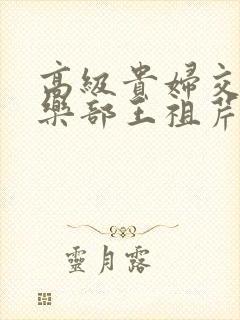 高級貴婦交
樂部王祖芹
靈月露